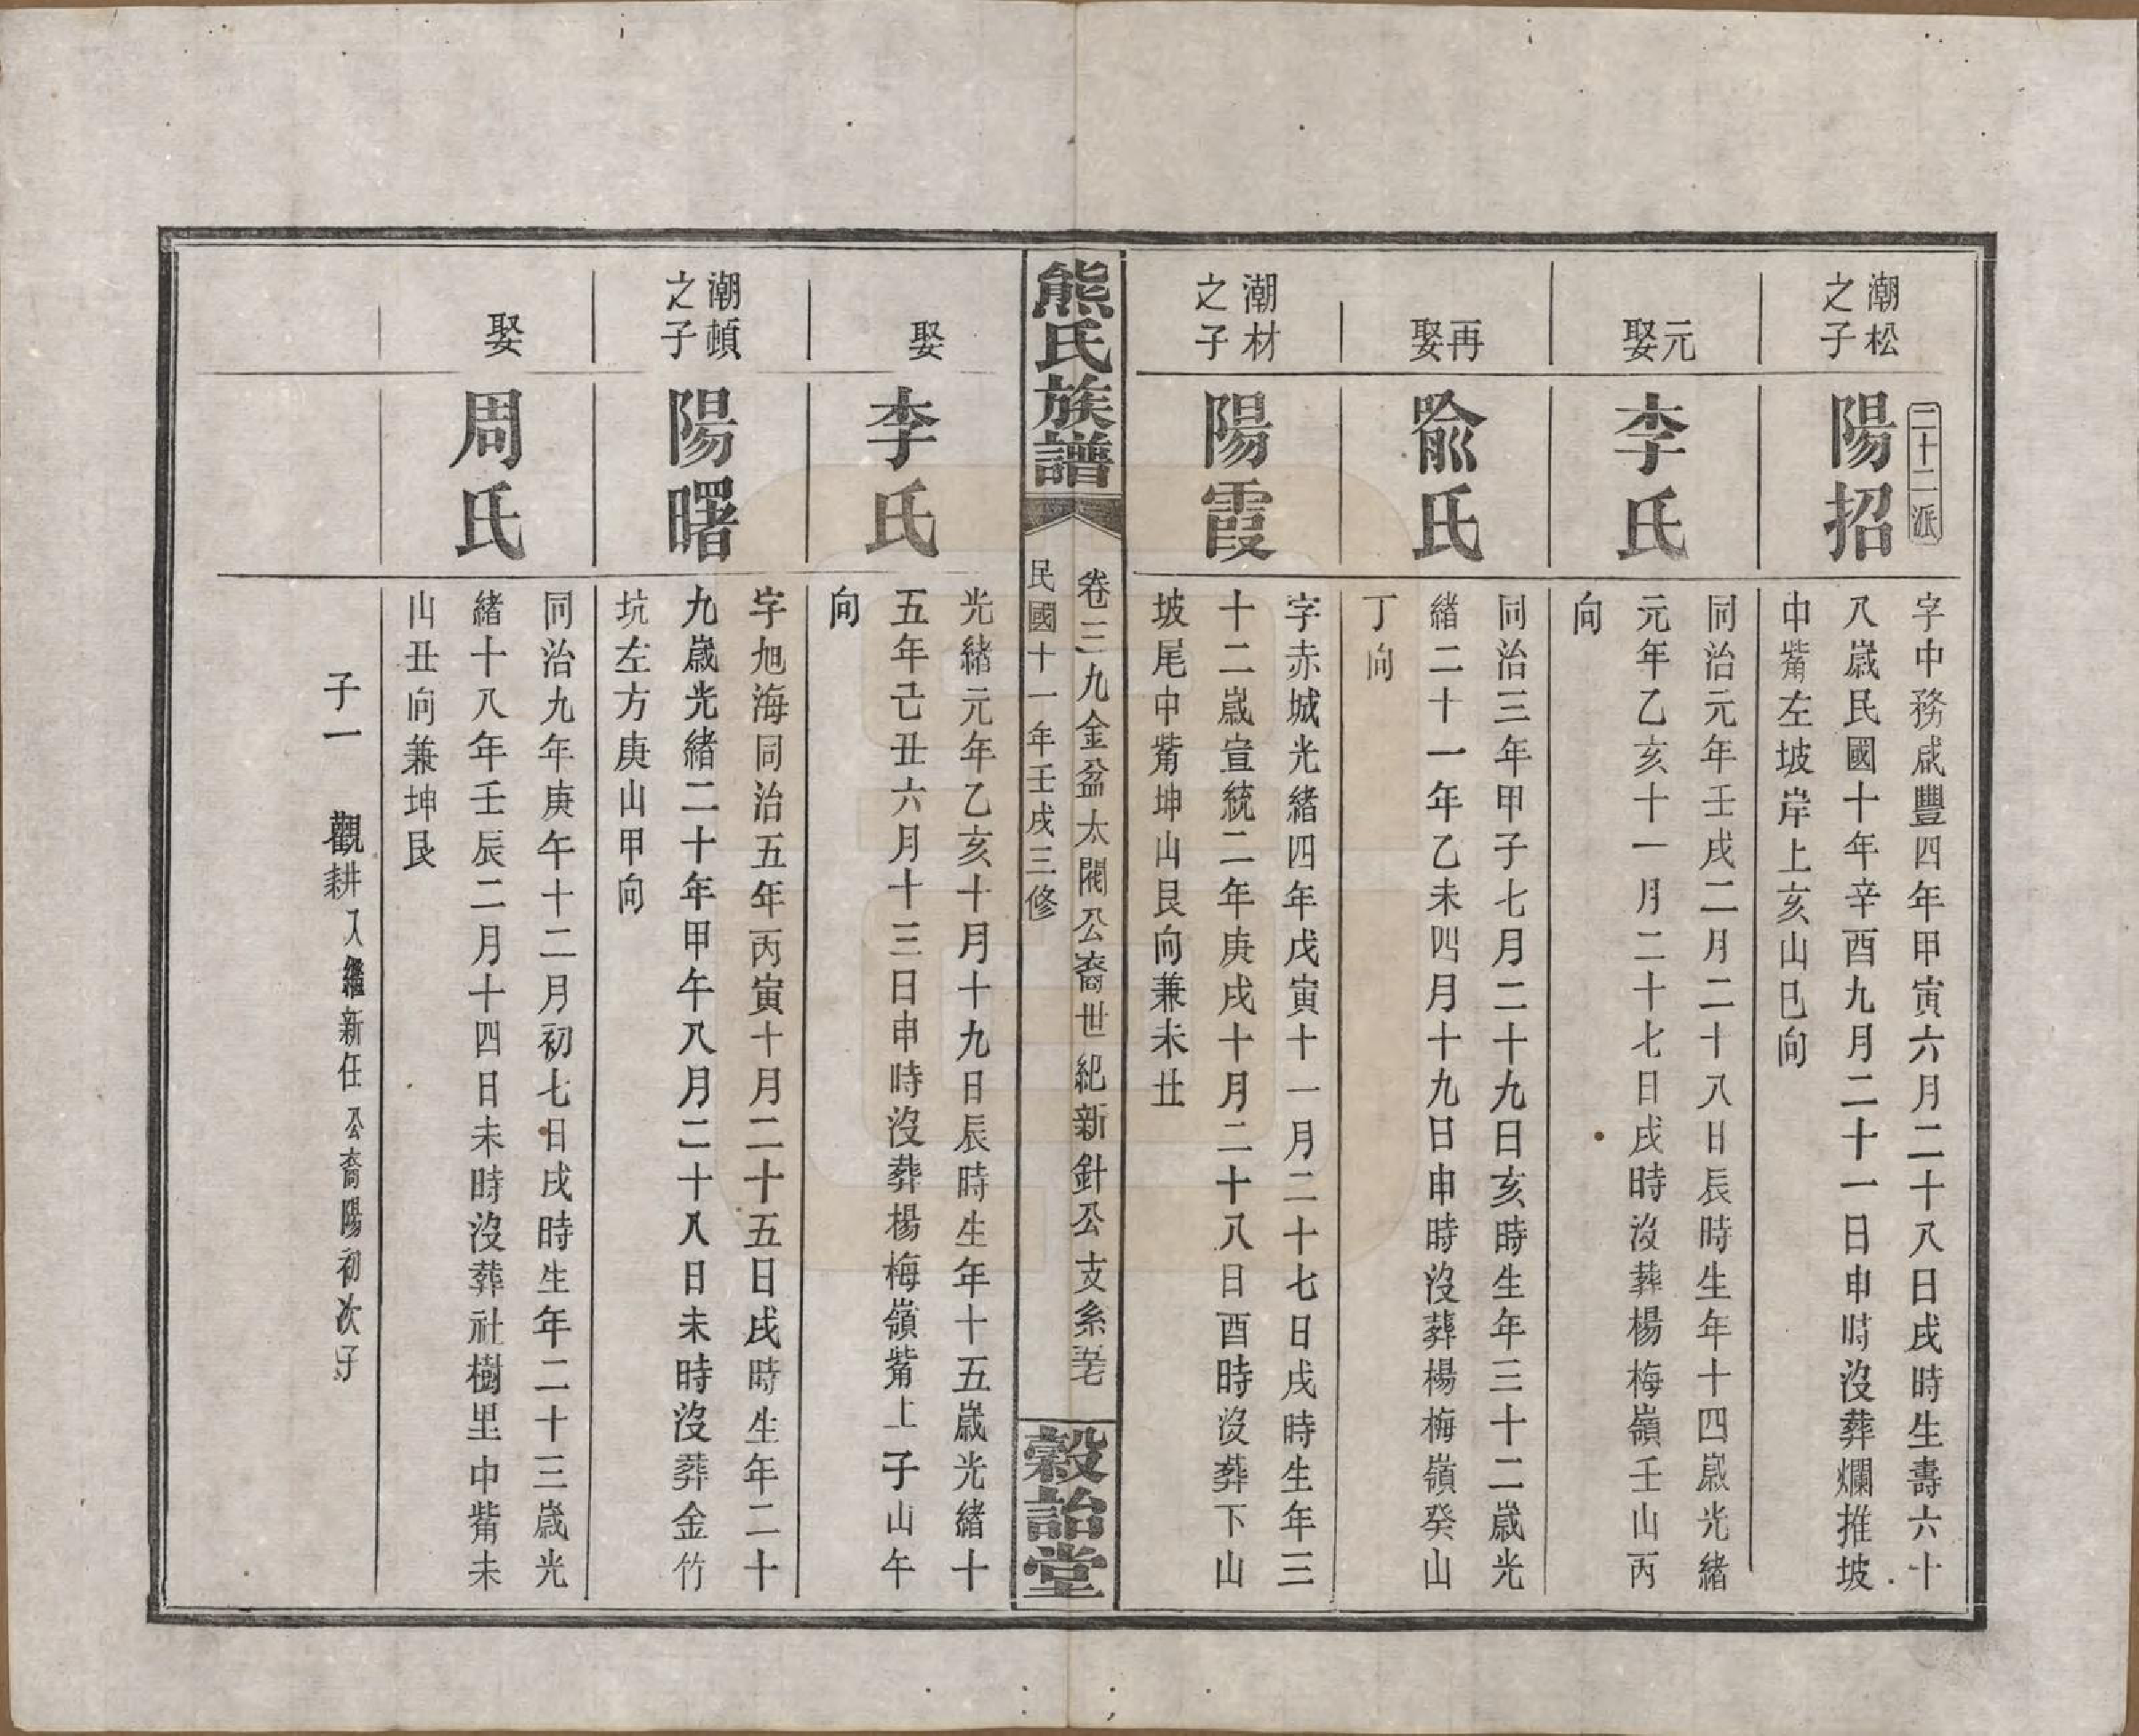 二十二派
潮松
之子
陽招
字中務咸豐四年甲寅六月二十八日戌時生壽六十
八歲民國十年辛酉九月二十一日申時沒葬爛推坡
中觜左坡岸上亥山巳向
元娶
李氏
同治元年壬戌二月二十八日辰時生年十四歲光緒
元年乙亥十一月二十七日戌時沒葬楊梅嶺壬山丙
向
再娶
俞氏
同治三年甲子七月二十九日亥時生年三十二歲光
緒二十一年乙未四月十九日申時沒葬楊梅嶺癸山
丁向
潮材
之子
陽霞
字赤城光緒四年戊寅十一月二十七日戌時生年三
十二歲宣統二年庚戌十月二十八日酉時沒葬下山
坡尾中觜坤山艮向兼未丑
熊氏族譜
卷三 九金盆太閣公裔世紀新針公支系
民國十一年壬戌三修
穀詒堂
娶
李氏
光緒元年乙亥十月十九日辰時生年十五歲光緒十
五年己丑六月十三日申時沒葬楊梅嶺觜上子山午
向
潮頓
之子
陽曙
字旭海同治五年丙寅十月二十五日戌時生年二十
九歲光緒二十年甲午八月二十八日未時沒葬金竹
坑左方庚山甲向
娶
周氏
同治九年庚午十二月初七日戌時生年二十三歲光
緒十八年壬辰二月十四日未時沒葬社樹里中觜未
山丑向兼坤艮
子一 觀耕入繼新任公裔陽初次子